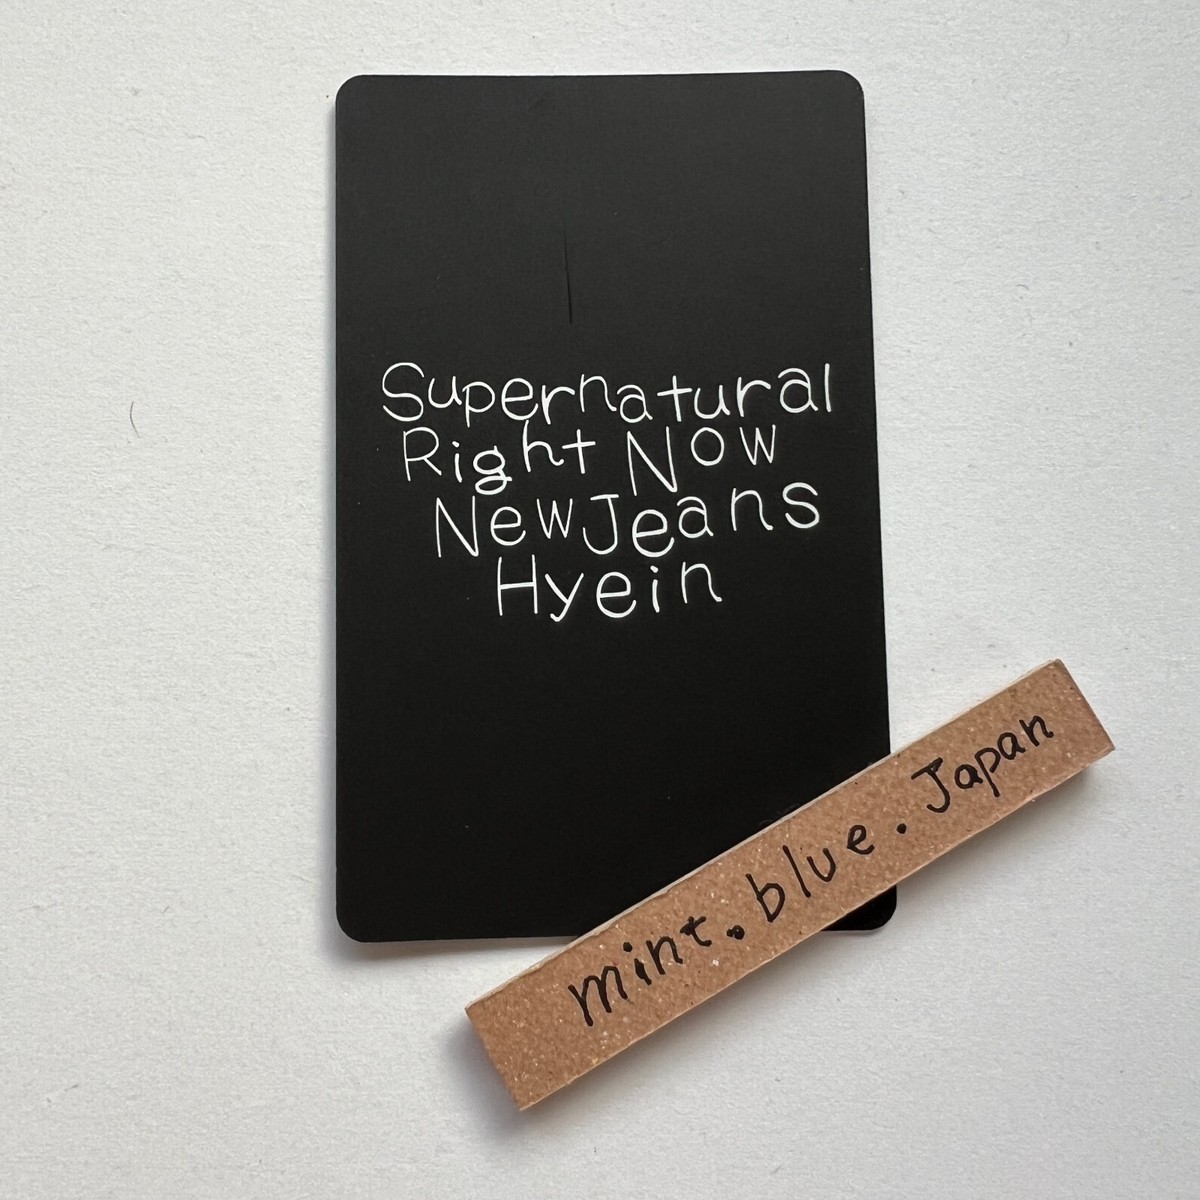 Supernatural
Right Now
NewJeans
Hyein
mint.blue.Japan